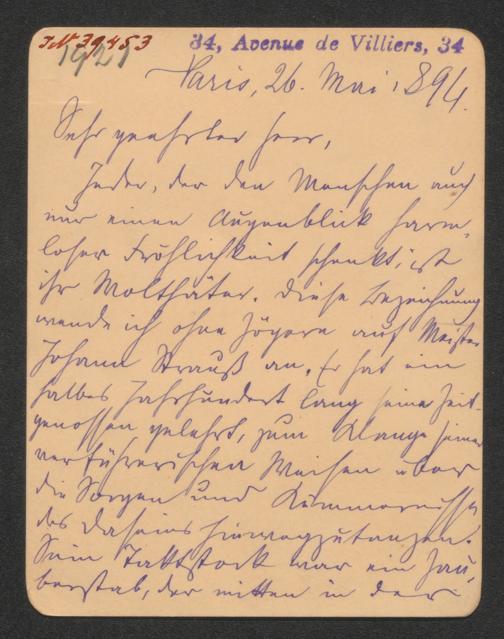 I.N. 39,453
34, Avenue de Villiers, 34
1921
Paris, 26. Mai 1894.
Sehr geehrter Herr,
Jeder, der den Menschen auch
nur einen Augenblick harm-
loser Fröhlichkeit schenkt, ist
ihr Wolthäter. Diese Bezeichnung
wende ich ohne Zögern auf Meister
Johann Strauß an. Er hat ein
halbes Jahrhundert lang seine Zeit-
genossen gelehrt, zum Klange seiner
verführerischen Weisen über
die Sorgen und Kümmernisse
des Daseins hinwegzutanzen.
Sein Taktstock war ein Zau-
berstab, der mitten in der